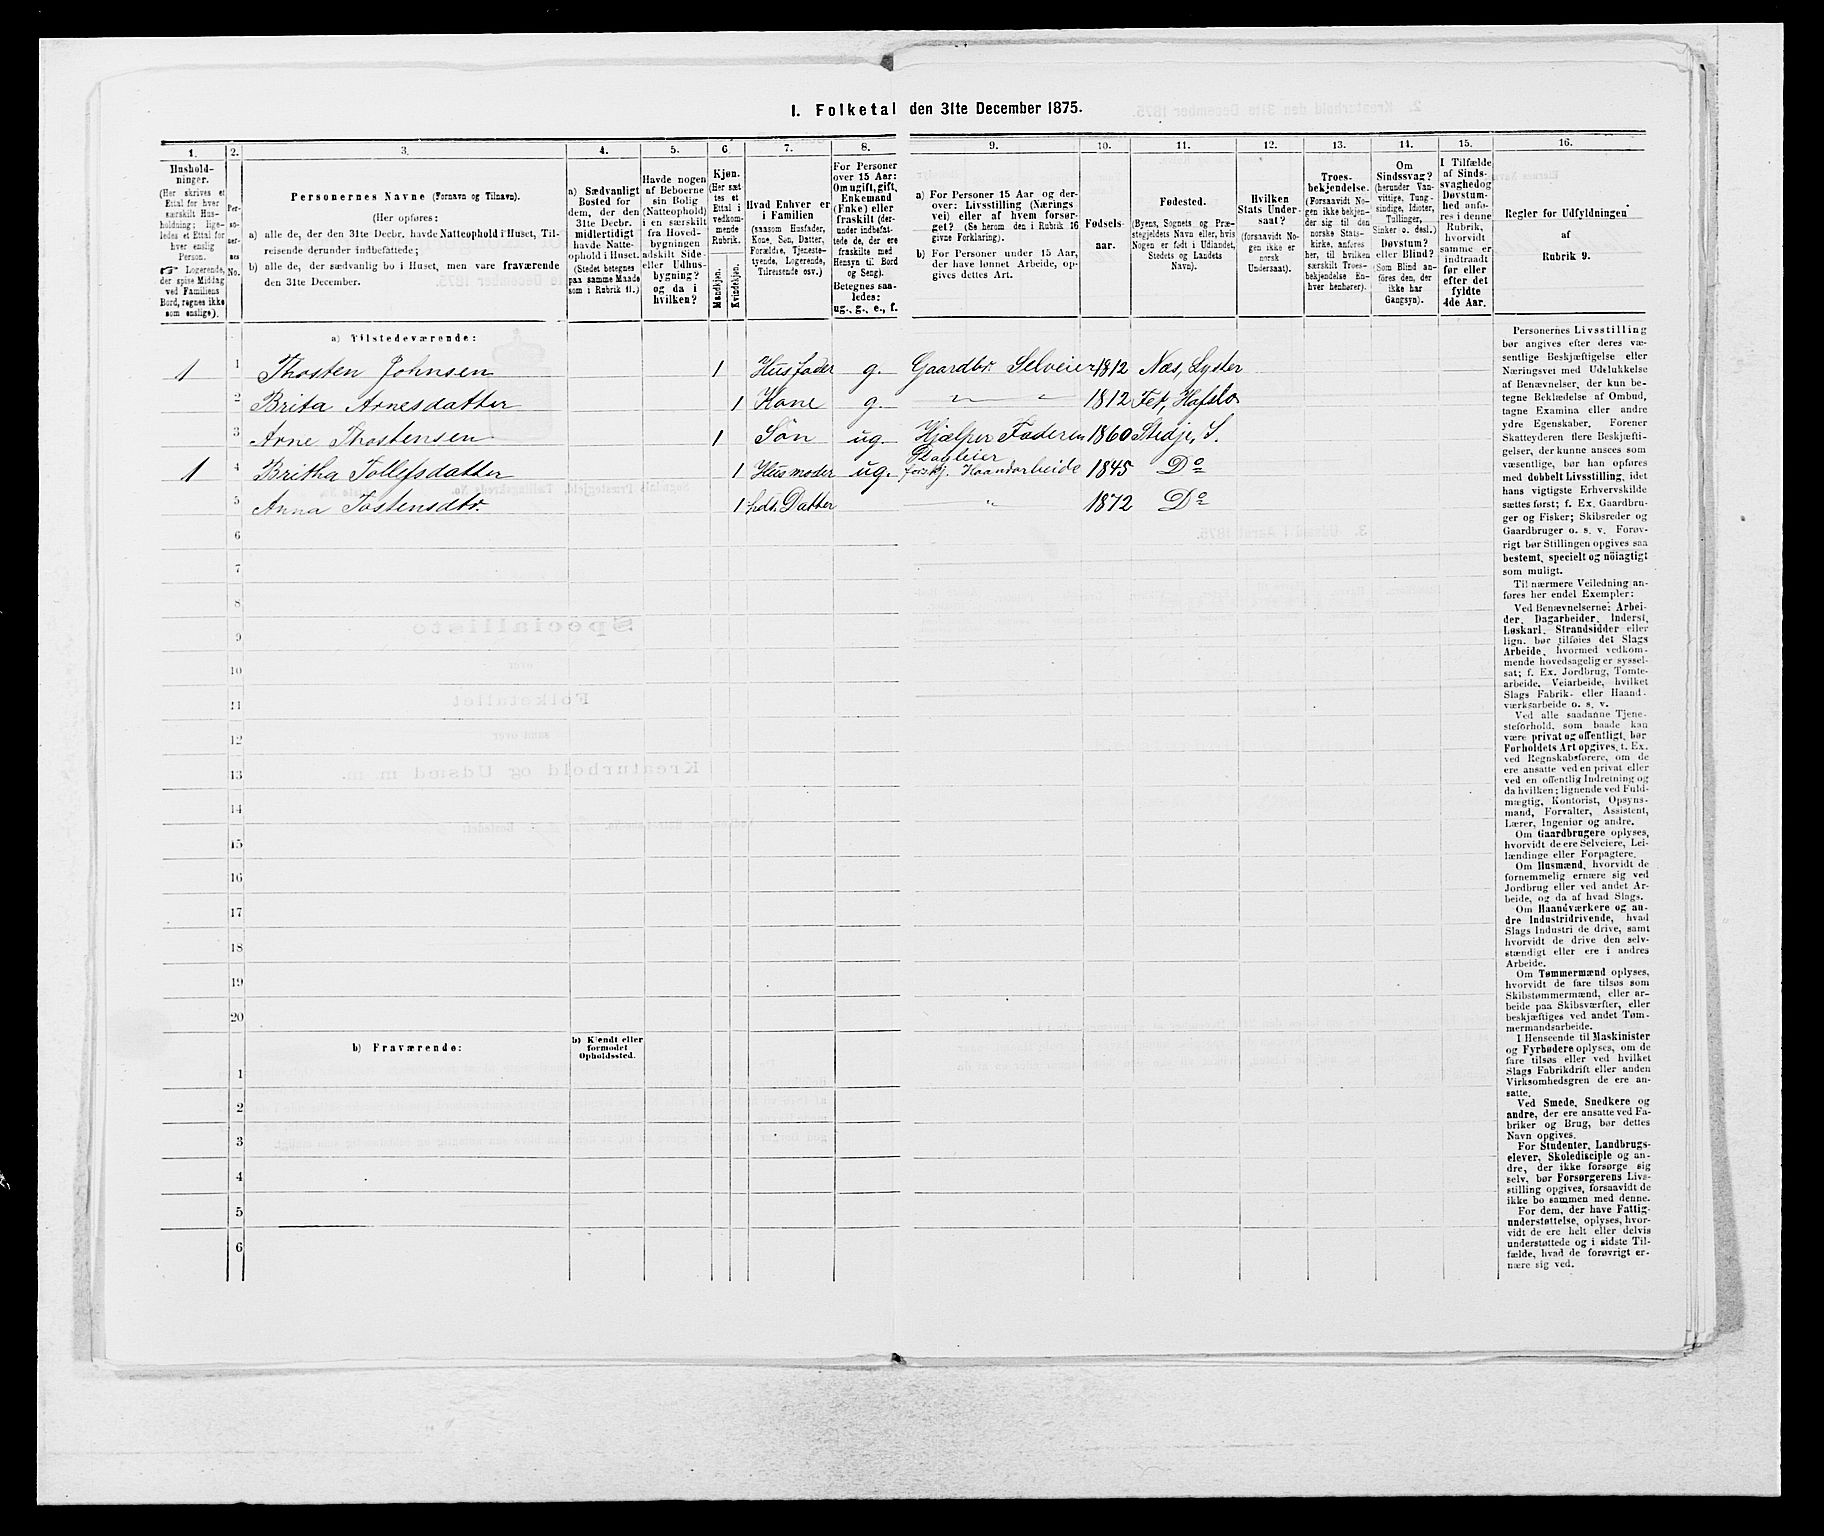 I. Folketal den 31te December 1875.
1. 2. 3. 4. 5. 6. 7. 8. 9. 10. 11. 12. 13. 14. 15. 16.
Hushold-
ninger.
(Her skrives et
Ettal for hver
særskilt Hus-
holdning; lige-
ledes et Ettal for
hver enslig
Person.
☞ Logerende,
der spise Middag
ved Familiens
Bord, regnes ikke
som enslige).
Per-
so-
ner-
nes
No.
Personernes Navne (Fornavn og Tilnavn).
(Her opføres:
a) alle de, der den 31te Decbr. havde Natteophold i Huset, Til-
reisende derunder indbefattede;
b) alle de, der sædvanlig bo i Huset, men vare fraværende
den 31te December.
a) Sædvanligt
Bosted for
dem, der den
31te Decbr.
midlertidigt
havde Natte-
ophold i Huset.
(Stedet betegnes
paa samme Maade
som i Rubrik 11.)
Havde nogen
af Beboerne
sin Bolig
(Natteophold)
i en særskilt
fra Hoved-
bygningen
adskilt Side-
eller Udhus-
bygning?
og da i
hvilken?
Kjøn.
(Her sæt-
tes et
Ettal i
vedkom-
mende
Rubrik.
Mandkjøn.
Kvindekjøn.
Hvad Enhver er
i Familien
(saasom Husfader,
Kone, Søn, Datter,
Forældre, Tjeneste-
tyende, Logerende,
Tilreisende osv.)
For Personer
over 15 Aar:
Om ugift, gift,
Enkemand
(Enke) eller
fraskilt (der-
under indbefat-
tede de, der ere
fraskilte med
Hensyn til Bord
og Seng).
Betegnes saa-
ledes:
ug., g., e., f.
a) For Personer 15 Aar og der-
over: Livsstilling (Nærings
vei) eller af hvem forsør-
get? (Se herom den i Rubrik 16
givne Forklaring).
b) For Personer under 15 Aar,
der have lønnet Arbeide, op-
gives dettes Art.
Fødsels-
aar.
Fødested.
(Byens, Sognets og Præ-
stegjeldets Navn eller, hvis
Nogen er født i Udlandet,
Stedets og Landets
Navn).
Hvilken
Stats Under-
saat?
(forsaavidt No-
gen ikke er
norsk
Undersaat).
Troes-
bekjendelse.
(Forsaavidt No-
gen ikke bekjen-
der sig til den
norske Stats-
kirke, anføres
her, til hvilken
særskilt Troes-
bekjendelse En-
hver henhører).
Om
Sindssvag?
(herunder Van-
vittige, Tung-
sindige, Idioter,
Tullinger,
Sinker o. desl.)
Døvstum?
eller Blind?
(Som Blind an-
føres den, der
ikke har
Gangsyn).
I Tilfælde
af Sinds-
svaghed og
Døvstum-
hed anfø-
res i denne
Rubrik,
hvorvidt
samme er
indtraadt
før eller
efter det
fyldte
4de Aar.
Regler for Udfyldningen
af
Rubrik 9.
a) Tilstedeværende:
1 1 Thosten Johnsen 1 Husfader g. Gaardbr. Selveier 1812 Næs, Lyster
2 Brita Arnesdatter 1 Kone g. " " 1812 Fet, Hafslo
3 Arne Thostensen 1 Søn ug. Hjælper Faderen 1860 Stedje, S.
1 4 Britha Tollefsdatter 1 Husmoder ug. forskj. Haandarbeide 1845 Do
5 Anna Tostensdtr. 1 hds. Datter " 1872 Do
6
7
8
9
10
11
12
13
14
15
16
17
18
19
20
b) Fraværende:
b) Kjendt eller
formodet
Opholdssted.
1
2
3
4
5
6
Personernes Livsstilling
bør angives efter deres væ-
sentlige Beskjæftigelse eller
Næringsvei med Udelukkelse
af Benævnelser, der kun be-
tegne Beklædelse af Ombud,
tagne Examina eller andre
ydre Egenskaber. Forener
Skatteyderen flere Beskjæfti-
gelser, der kunne ansees som
væsentlige, bør han opføres
med dobbelt Livsstilling, idet
hans vigtigste Erhvervskilde
sættes først; f. Ex. Gaardbru-
ger og Fisker; Skibsreder og
Gaardbruger o. s. v. Forøv-
rigt bør Stillingen opgives saa
bestemt, specielt og nöiagtigt
som muligt.
Til nærmere Veiledning an-
føres her endel Exempler:
Ved Benævnelserne: Arbei-
der, Dagarbeider, Inderst,
Løskarl, Strandsidder eller
lign. bør tilføies det Slags
Arbeide, hvormed vedkom-
mende hovedsagelig er syssel-
sat; f. Ex. Jordbrug, Tomte-
arbeide, Veiarbeide, hvilket
Slags Fabrik- eller Haand-
værksarbeide o. s. v.
Ved alle saadanne Tjene-
steforhold, som baade kan
være privat og offentligt, bør
Forholdets Art opgives, t. Ex.
ved Regnskabsførere, om de
ere ansatte ved en privat eller
ved en offentlig Indretning og
da hvilken; lignende ved Fuld-
mægtig, Kontorist, Opsyns-
mand, Forvalter, Assistent,
Lærer, Ingeniør og andre.
Om Gaardbrugere oplyses,
hvorvidt de ere Selveiere, Lei-
lændinge eller Forpagtere.
Om Husmænd, hvorvidt de
fornemmelig ernære sig ved
Jordbrug eller ved andet Ar-
beide, og da af hvad Slags.
Om Haandværkere og an-
dre Industridrivende, hvad
Slags Industri de drive, samt
hvorvidt de drive den selv-
stændigt eller ere i andres
Arbeide.
Om Tømmermænd oplyses,
hvorvidt de fare tilsøs som
Skibstømmermænd, eller ar-
beide paa Skibsværfter, eller
beskjæftiges ved andet Tøm-
mermandsarbeide.
I Henseende til Maskinister
og Fyrbødere oplyses, om de
fare tilsøs eller ved hvilket
Slags Fabrikdrift eller anden
Virksomhedsgren de ere an-
satte.
Ved Smede, Snedkere og
andre, der ere ansatte ved Fa-
briker og Brug, bør dettes
Navn opgives.
For Studenter, Landbrugs-
elever, Skoledisciple og an-
dre, der ikke forsørge sig
selv, bør Forsørgerens Livs-
stilling opgives, forsaavidt de
ikke bo sammen med denne.
For dem, der have Fattig-
understøttelse, oplyses, hvor-
vidt de ere helt eller delvis
understøttede og i sidste Til-
fælde, hvad de forøvrigt er-
nære sig ved.